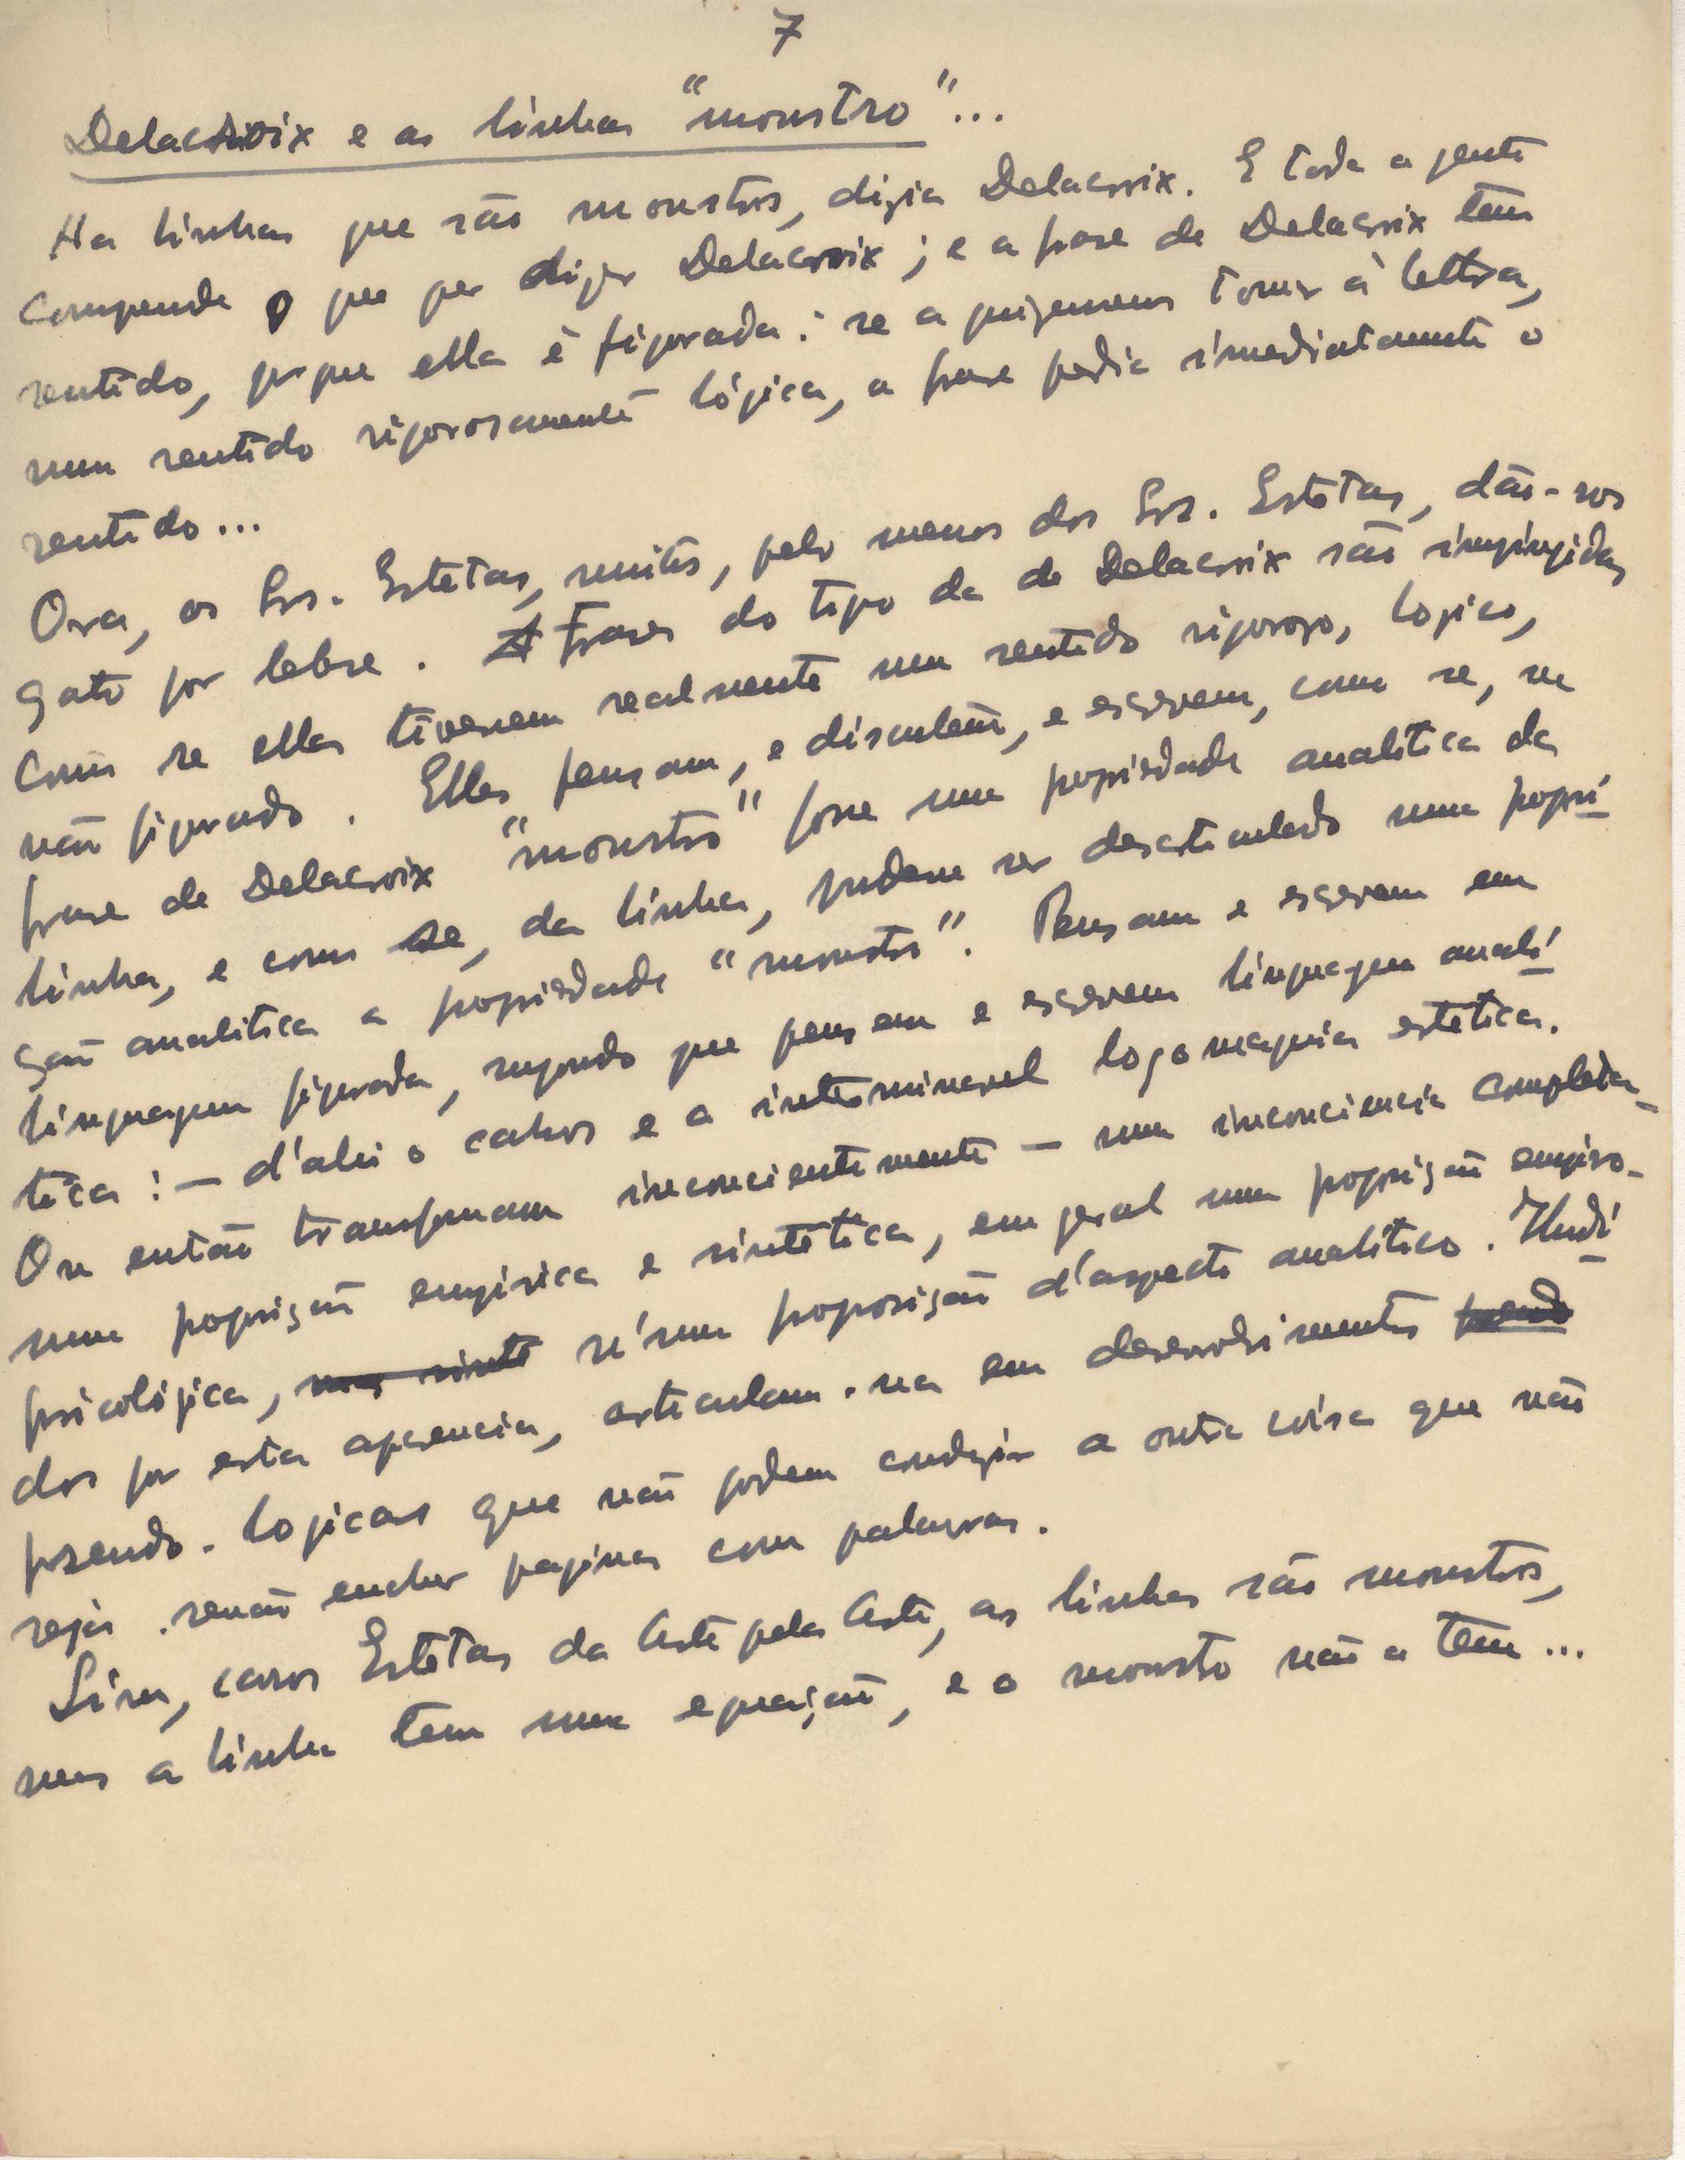 7
Delacroix e as linhas "monstro"...
Ha linhas que são monstros, dizia Delacroix. E toda a gente
compreende o que quer dizer Delacroix; e a frase de Delacroix tem
sentido, porque ella é figurada: se a quizermos tomar à lettra,
num sentido rigorosamente lógica, a frase perdia imediatamente o
sentido...
Ora, os Srs. Estetas, muitos, pelo menos dos Srs. Estetas, dão-nos
gato por lebre. A Frases do tipo da de Delacroix são impingidas
como se ellas tivessem realmente um sentido rigoroso, logico,
não figurado. Elles pensam, e discutem, e escrevem, como se, na
frase de Delacroix "monstro" fosse uma propriedade analitica da
linha, e como se, da linha, pudesse ser desarticulado numa propri-
ção analitica a propriedade "monstro". Pensam e escrevem em
linguagem figurada, supondo que pensam e escrevem linguagem analí-
tica: - d'ahi o cahos e a interminavel logomaquia estetica.
Ou então transformam inconcientemente - numa inconciencia completa -
numa proposição empirica e sintética, em geral numa proposição empiro-
psicológica, n'uma proposição d'aspecto analitico. Iludi-
dos por esta aparencia, articulam-na em desenvolvimentos
pseudo-logicos que não podem conduzir a outra coisa que não
seja senão encher paginas com palavras.
Sim, caros Estetas da Arte pela Arte, as linhas são monstros,
mas a linha tem uma equação, e o monstro não a tem...